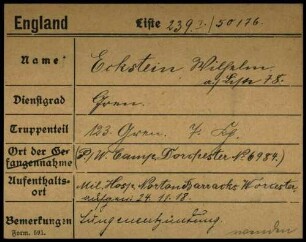 England Liste 239 I/50176
Name: Eckstein, Wilhelm
Dienstgrad Gren.
Truppenteil 123 Gren. 7. Kp.
Ort der Ge-
fangennahme (P/W. Camp Dorchester No 6984.)
Aufenthalts- Mil. Hosp. Worcester,
ort 24.11.18.
Bemerkungen Lungenentzündung
Form. 101.